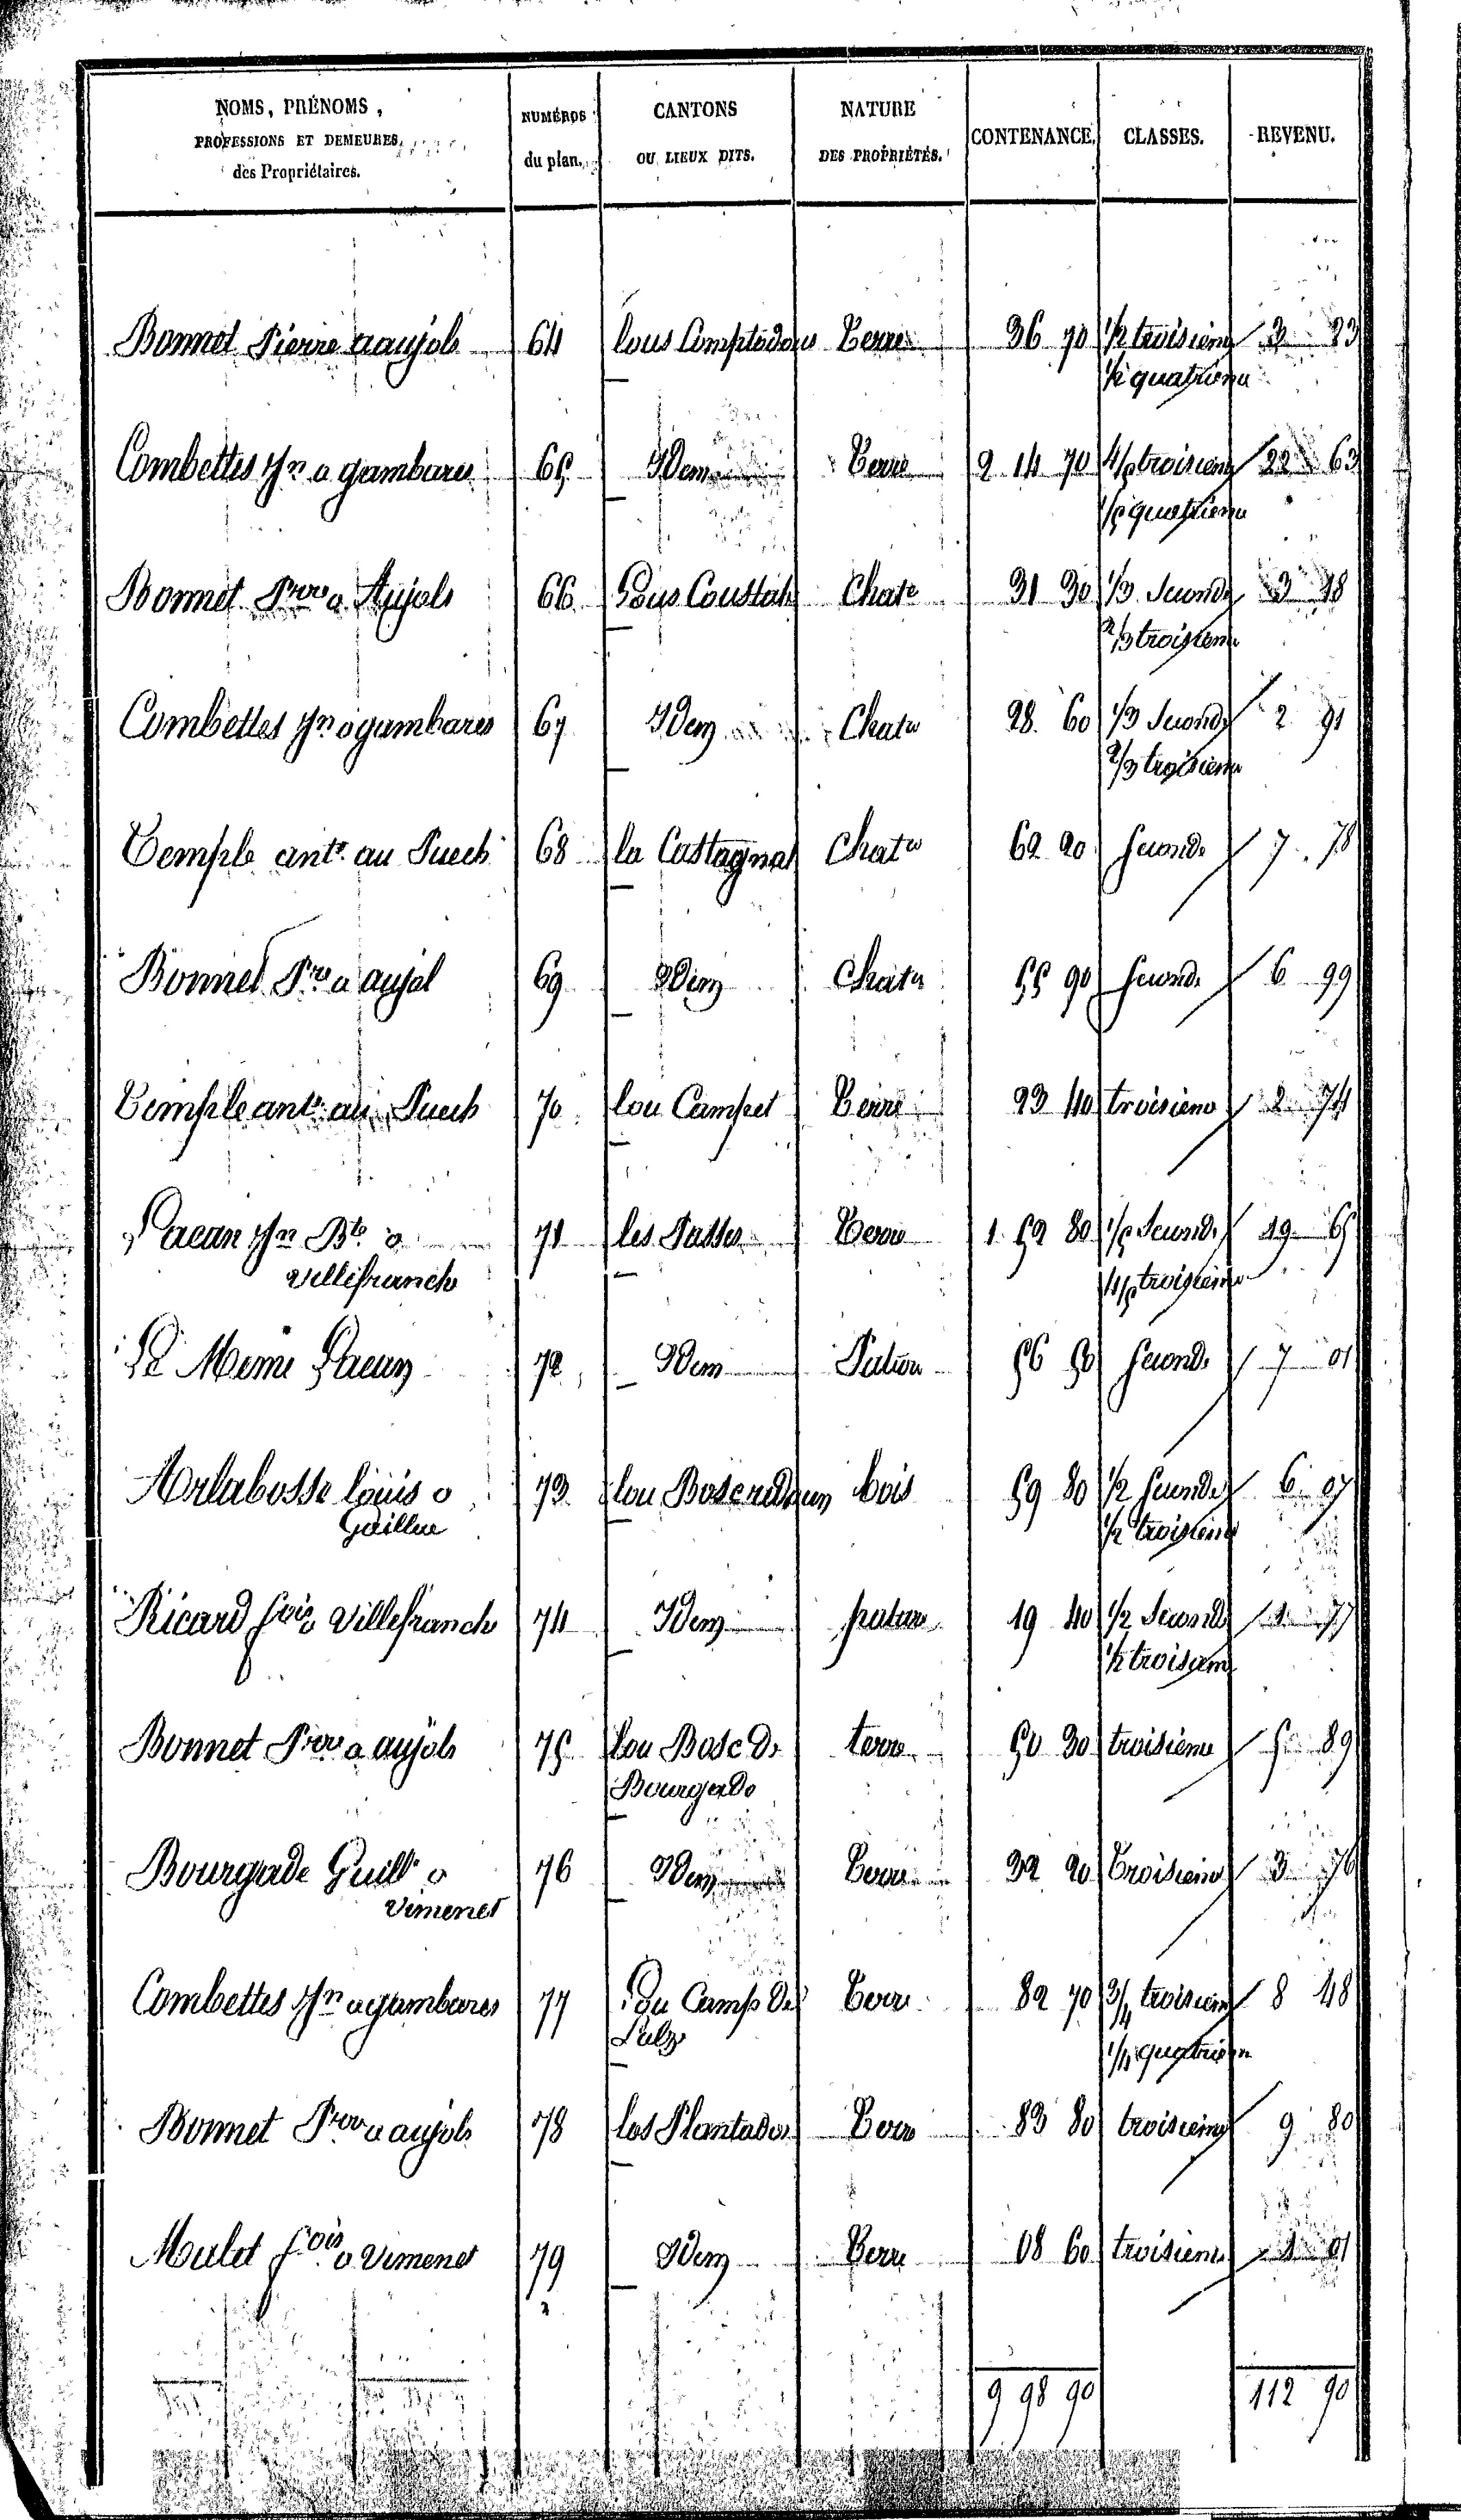 NOMS, PRÉNOMS, PROFESSIONS ET DEMEURES, des Propriétaires. NUMÉROS du plan. CANTONS OU LIEUX DITS. NATURE DES PROPRIÉTÉS. CONTENANCE. CLASSES. REVENU.
Bonnet Pierre a aujols 64 lous Comptadous Terre 36 70 1/2 troisieme 3 23
1/2 quatrieme
Combettes Jn a gambares 65 Idem Terre 2 14 70 4/5 troisieme 22 63
1/5 quatrieme
Bonnet Pre a Aujols 66 Sous Coustals Chate 31 30 1/3 Seconde 3 18
2/3 troisieme
Combettes Jn a gambares 67 Idem Chate 28 60 1/3 Seconde 2 91
2/3 troisieme
Temple ant. au Puech 68 la Castagnal Chate 62 20 Seconde 7 78
Bonnet Pre a aujol 69 Idem Chate 55 90 Seconde 6 99
Temple ant. au Puech 70 lou Campet Terre 23 40 troisieme 2 74
Jn Bte a 71 les Terre 1 59 80 1/5 Seconde 19 65
Villefranche
4/5 troisieme
Le Meme 72 Idem Pature 56 50 Seconde 7 01
Arlabosse louis a 73 lou bois 59 80 1/2 Seconde 6 07
1/2 troisieme
Ricard fois a Villefranche 74 Idem pature 19 40 1/2 Seconde 1 77
1/2 troisieme
Bonnet Pre a aujols 75 lou Bosc De terre 50 30 troisieme 5 89
Bourgade
Bourgade Guill. a 76 Idem Terre 32 20 Troisieme 3 76
Vimenet
Combettes Jn a gambares 77 Lou Camp Del Terre 82 70 3/4 troisieme 8 48
1/4 quatrieme
Bonnet Pre a aujols 78 los Plantados Terre 83 80 troisieme 9 80
Mulet fois a Vimenet 79 Idem Terre 08 60 troisieme 1 01
9 98 90 112 90